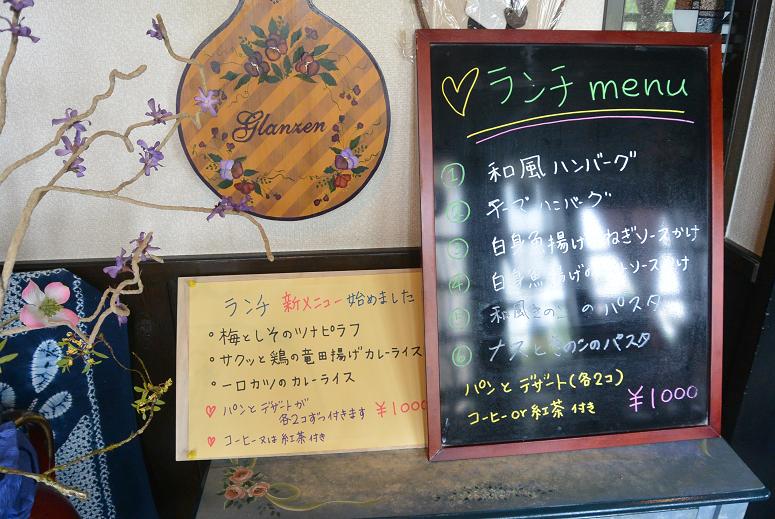 Glanzen
ランチ 新メニュー 始めました
・梅としそのツナピラフ
・サクッと鶏の竜田揚げカレーライス
・一口カツのカレーライス
♡ パンとデザートが
各2コずつ付きます ¥1000
♡ コーヒー又は紅茶付き
♡ ランチ menu
① 和風ハンバーグ
② チーズハンバーグ
③ 白身魚揚げ ねぎソースかけ
④ 白身魚揚げの ソースかけ
⑤ 和風きのこのパスタ
⑥ ナスときのこのパスタ
パンとデザート(各2コ)
コーヒーor紅茶 付き ¥1000